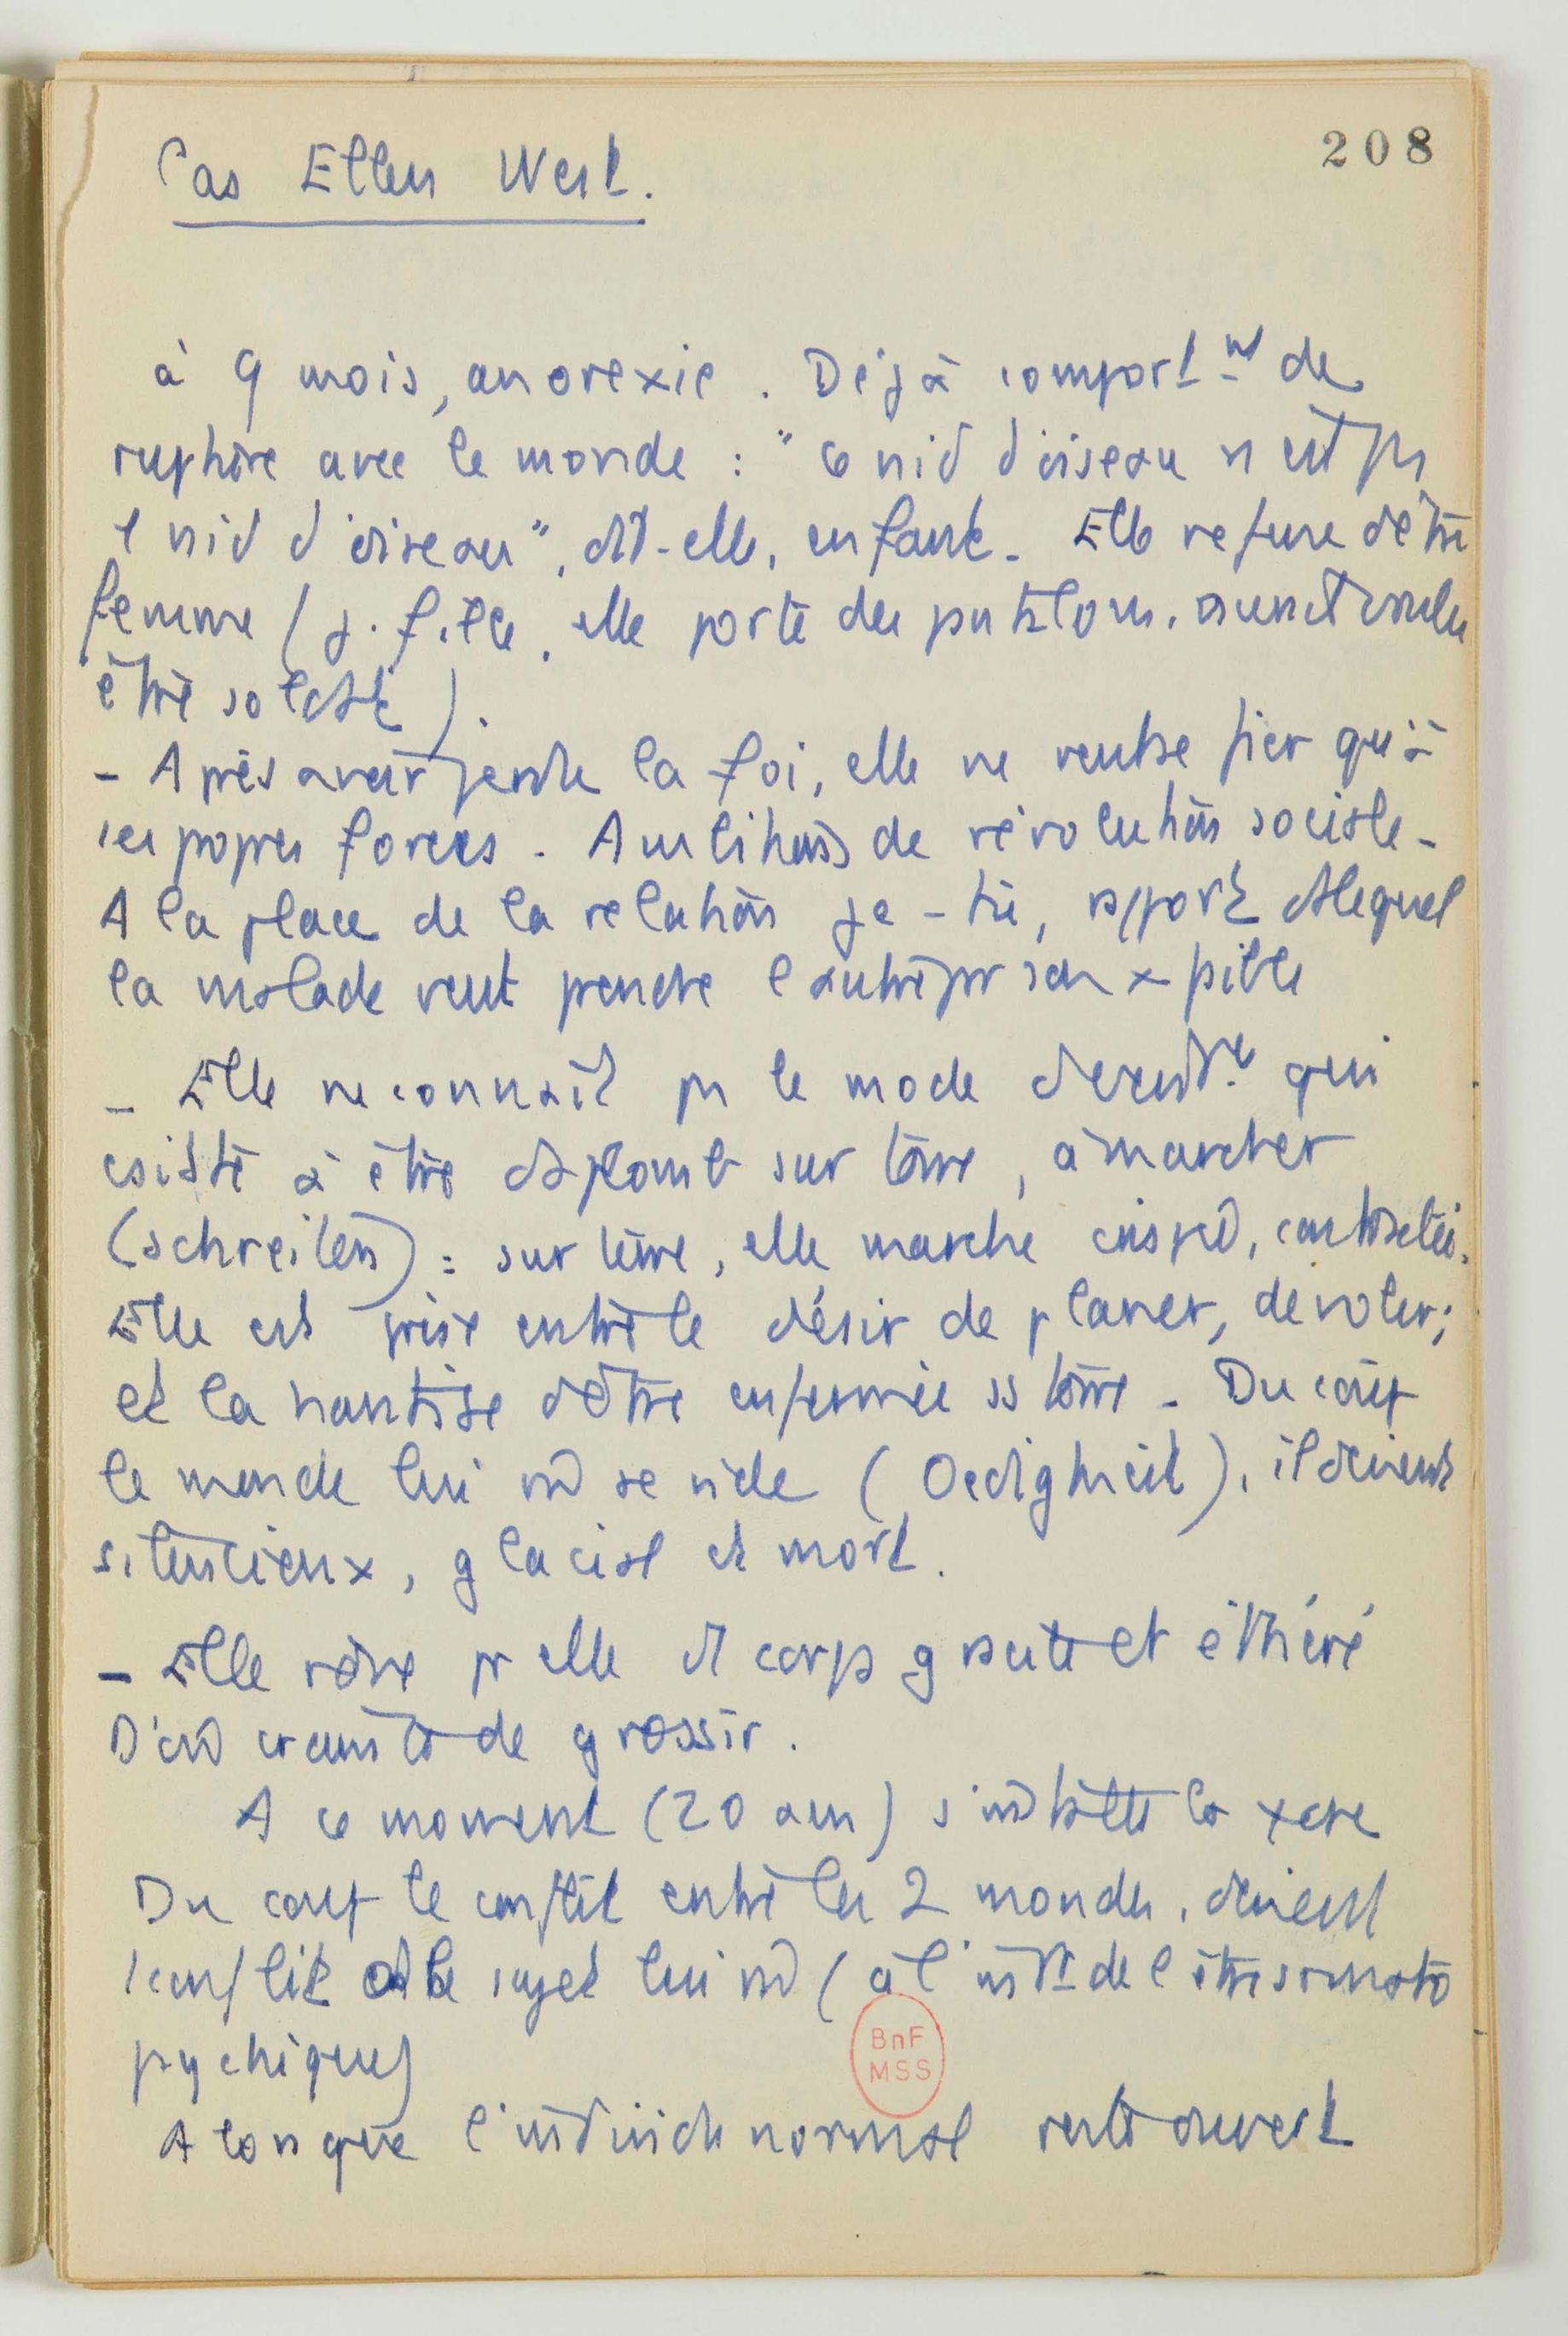 208
Cas Ellen West.
à 9 mois, anorexie. Déjà comportnt de
rupture avec le monde : "ce nid d'oiseau n'est ps
1 nid d'oiseau", dit-elle, enfant. Elle refuse d'être
femme (j. fille, elle porte des pantalons, aurait voulu
être soldat).
- Après avoir perdu la foi, elle ne veut se fier qu'à
ses propres forces. Ambitions de révolution sociale -
A la place de la relation je-tu, rapport ds lequel
la malade veut prendre l'autre pr son x faible
- Elle ne connaît ps le mode d'exist.ce qui
csiste à être d'aplomb sur terre, à marcher
(schreiten) : sur terre, elle marche crispée, contractée.
Elle est prise entre le désir de planer, de voler;
et la hantise d'être enfermée ss terre. Du coup
le monde lui m se vide (Oedigkeit), il devient
silencieux, glacial et mort.
- Elle rêve pr elle d'1 corps gracile et éthéré
D'où crainte de grossir.
A ce moment (20 ans) s'installe la
Du coup le conflit entre les 2 mondes, devient
1 conflit ds le sujet lui m (à l'intr de l'être somato
psychique)
Alors que l'individu normal reste ouvert
BnF
MSS